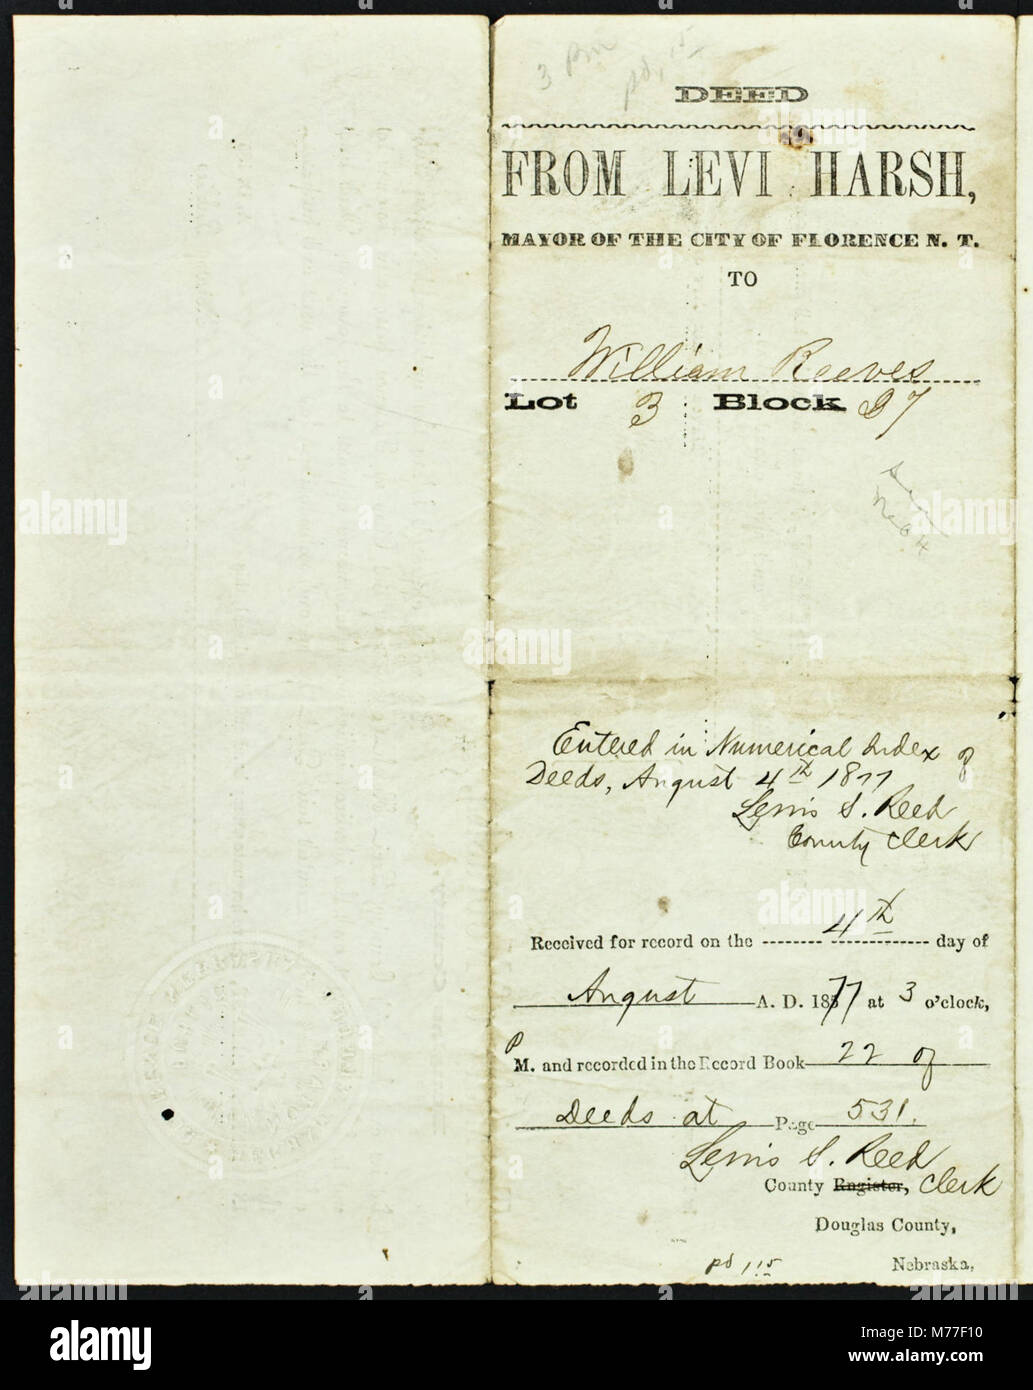 3 pm
pd, 15
DEED
FROM LEVI HARSH,
MAYOR OF THE CITY OF FLORENCE N. T.
TO
William Reeves
Lot 3 Block 27
Entered in Numerical Index of
Deeds, August 4th 1877
Lewis S. Reed
County Clerk
Received for record on the 4th day of
August A. D. 1877 at 3 o'clock,
P M. and recorded in the Record Book 22 of
Deeds at Page 531.
Lewis S. Reed
County Register, Clerk
Douglas County,
Nebraska,
pd 1.15
alamy
Image ID: M77F10
www.alamy.com